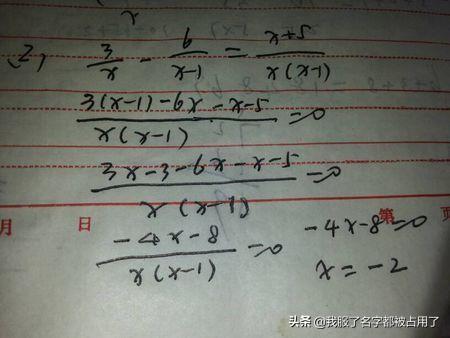 (2) 3/x - 6/(x-1) = (x+5)/(x(x-1))
(3(x-1)-6x-x-5)/(x(x-1)) =0
(3x-3-6x-x-5)/(x(x-1)) =0
月 日 第 页
(-4x-8)/(x(x-1)) =0 -4x-8=0
x=-2
头条 @我服了名字都被占用了